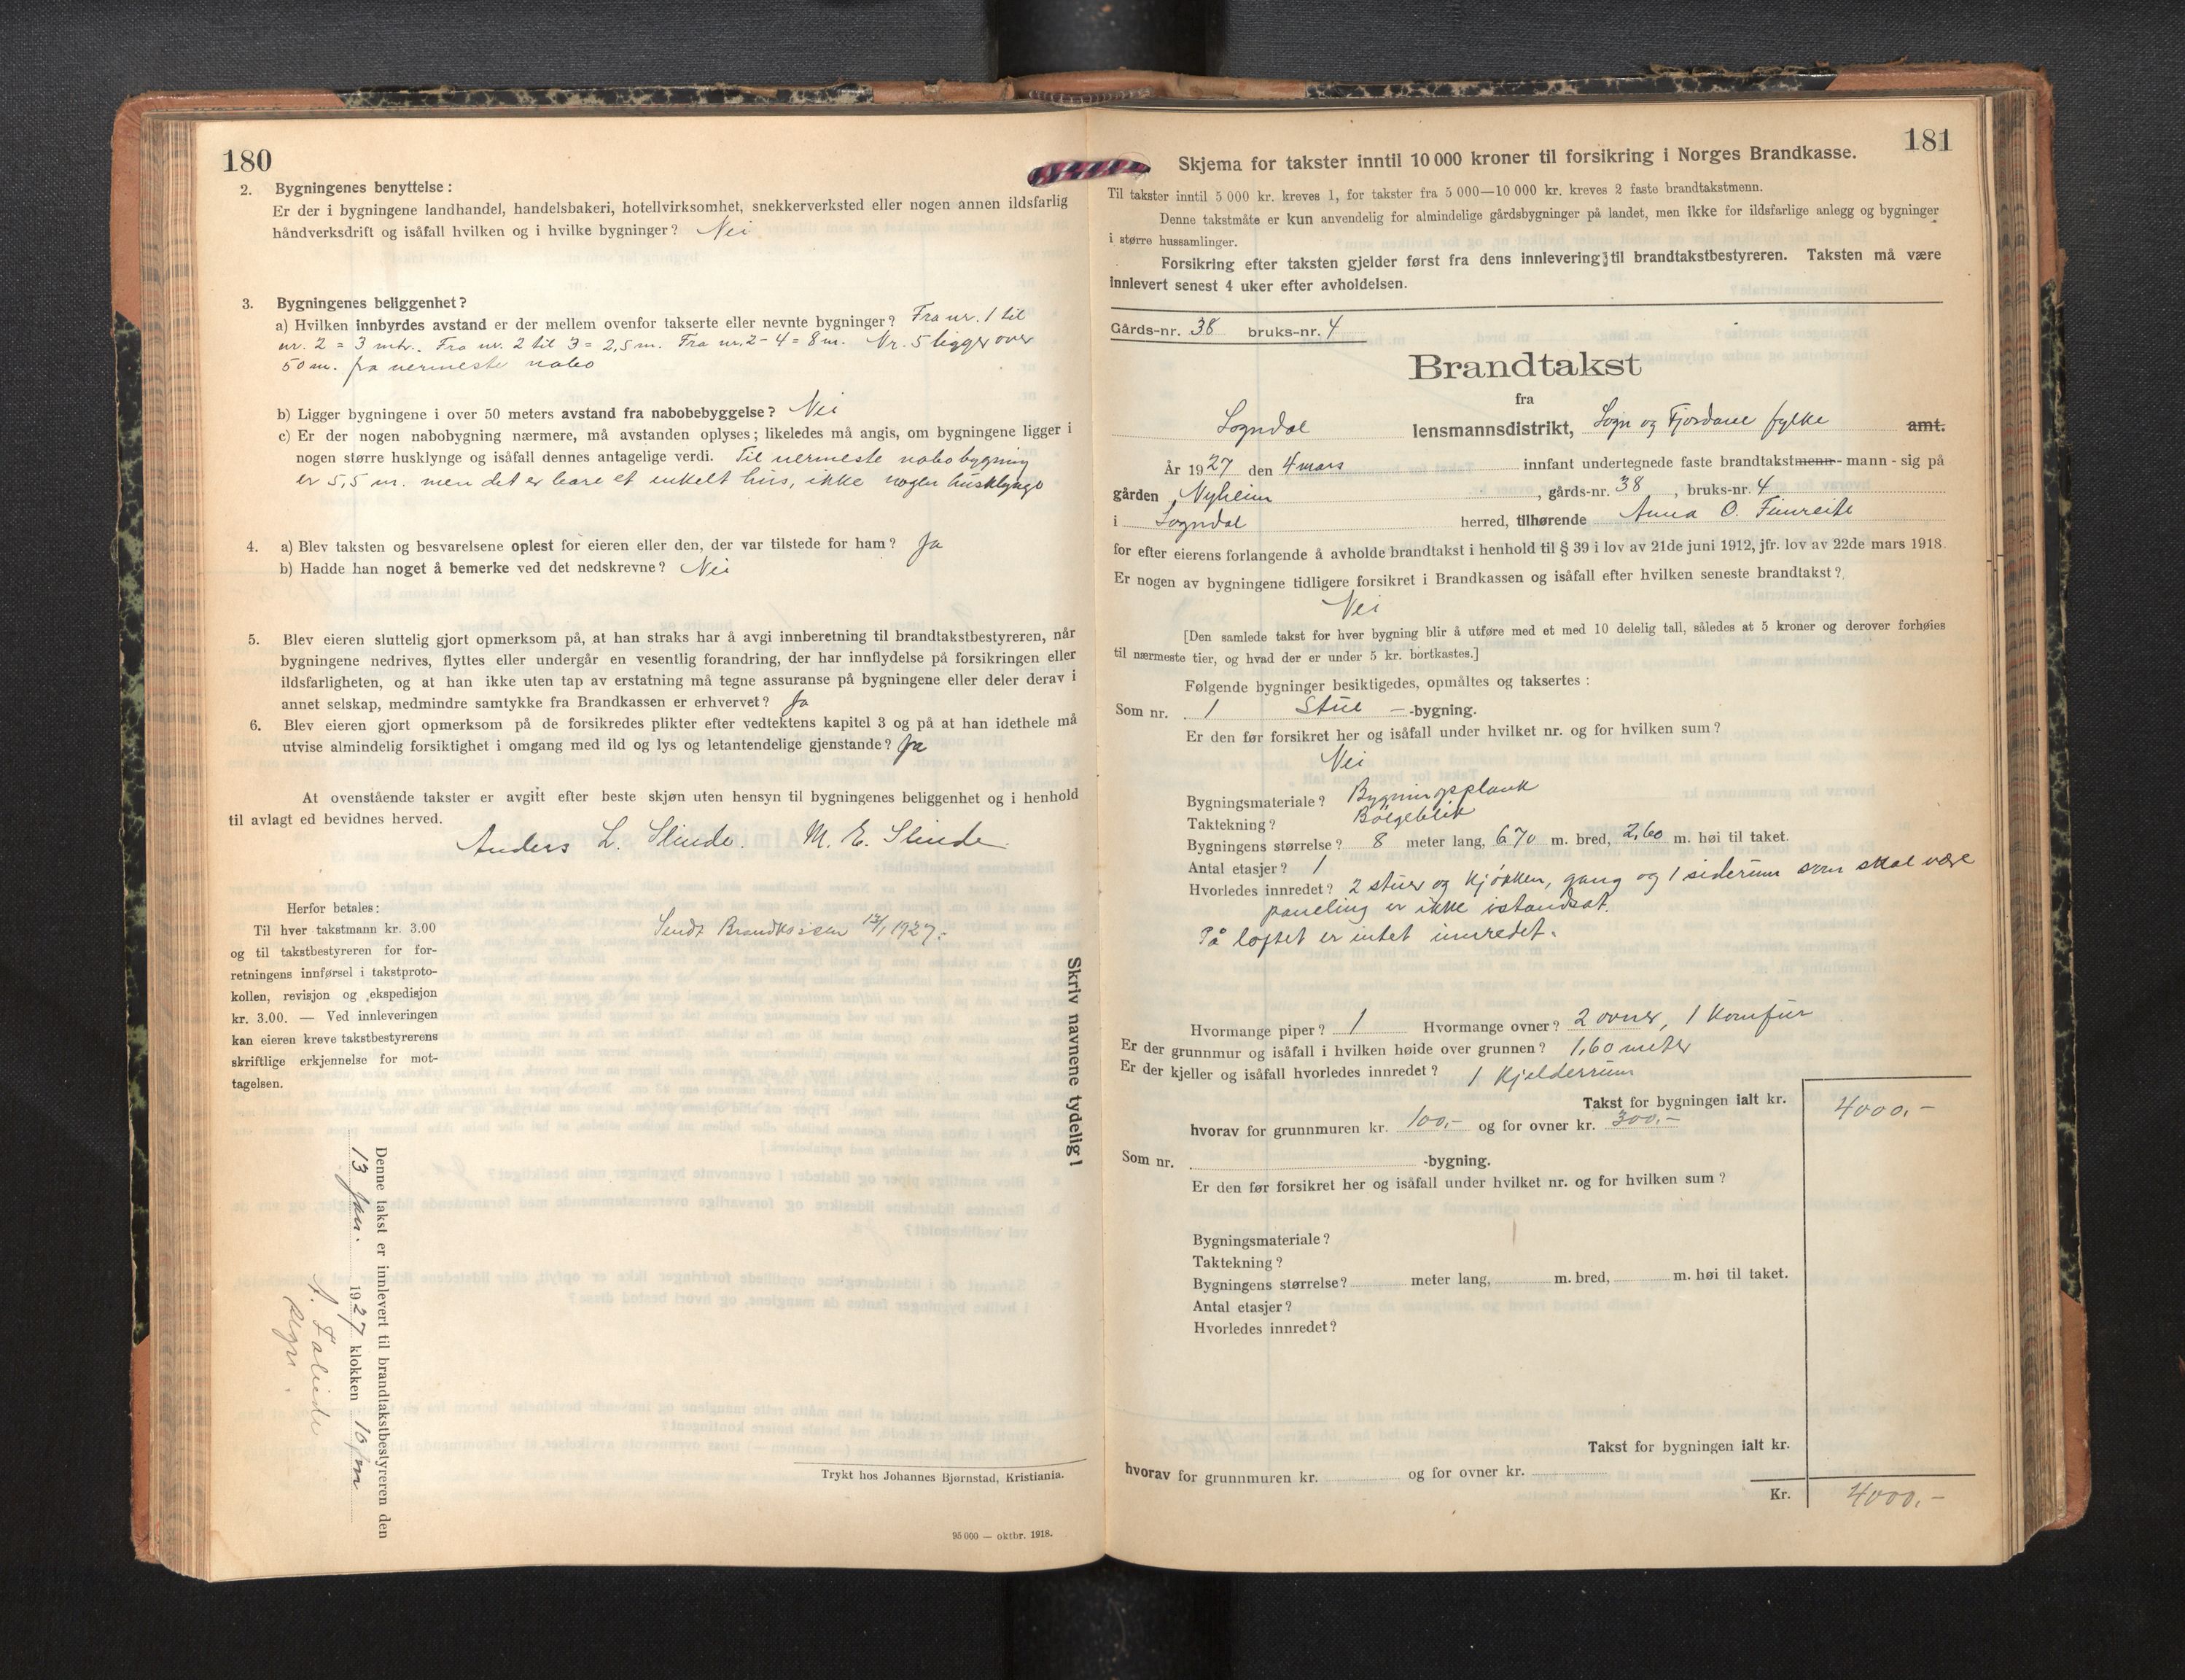 180
2. Bygningenes benyttelse:
Er der i bygningene landhandel, handelsbakeri, hotellvirksomhet, snekkerverksted eller nogen annen ildsfarlig
håndverksdrift og isåfall hvilken og i hvilke bygninger? Nei
3. Bygningenes beliggenhet?
a) Hvilken innbyrdes avstand er der mellem ovenfor takserte eller nevnte bygninger? Fra nr. 1 til
nr. 2 = 3 mtr. Fra nr. 2 til 3 = 2,5 m. Fra nr. 2 - 4 = 8 m. Nr. 5 ligger over
50 m. fra nermeste nabo
b) Ligger bygningene i over 50 meters avstand fra nabobebyggelse? Nei
c) Er der nogen nabobygning nærmere, må avstanden oplyses; likeledes må angis, om bygningene ligger i
nogen større husklynge og isåfall dennes antagelige verdi. Til nermeste nabobygning
er 5,5 m. men det er bare et enkelt hus, ikke nogen husklynge
4. a) Blev taksten og besvarelsene oplest for eieren eller den, der var tilstede for ham? Ja
b) Hadde han noget å bemerke ved det nedskrevne? Nei
5. Blev eieren sluttelig gjort opmerksom på, at han straks har å avgi innberetning til brandtakstbestyreren, når
bygningene nedrives, flyttes eller undergår en vesentlig forandring, der har innflydelse på forsikringen eller
ildsfarligheten, og at han ikke uten tap av erstatning må tegne assuranse på bygningene eller deler derav i
annet selskap, medmindre samtykke fra Brandkassen er erhvervet? Ja
6. Blev eieren gjort opmerksom på de forsikredes plikter efter vedtektens kapitel 3 og på at han idethele må
utvise almindelig forsiktighet i omgang med ild og lys og letantendelige gjenstande? Ja
At ovenstående takster er avgitt efter beste skjøn uten hensyn til bygningenes beliggenhet og i henhold
til avlagt ed bevidnes herved.
Anders L. Slinde. M. E. Slinde
Herfor betales:
Til hver takstmann kr. 3.00
og til takstbestyreren for for-
retningens innførsel i takstproto-
kollen, revisjon og ekspedisjon
kr. 3.00. — Ved innleveringen
kan eieren kreve takstbestyrerens
skriftlige erkjennelse for mot-
tagelsen.
Sendt Brandkassen 1927.
Skriv navnene tydelig!
Denne takst er innlevert til brandtakstbestyreren den
13 Jan. 1927 klokken 10 fm
Trykt hos Johannes Bjørnstad, Kristiania.
95 000 — oktbr. 1918.
181
Skjema for takster inntil 10 000 kroner til forsikring i Norges Brandkasse.
Til takster inntil 5 000 kr. kreves 1, for takster fra 5 000—10 000 kr. kreves 2 faste brandtakstmenn.
Denne takstmåte er kun anvendelig for almindelige gårdsbygninger på landet, men ikke for ildsfarlige anlegg og bygninger
i større hussamlinger.
Forsikring efter taksten gjelder først fra dens innlevering til brandtakstbestyreren. Taksten må være
innlevert senest 4 uker efter avholdelsen.
Gårds-nr. 38 bruks-nr. 4
Brandtakst
fra
Sogndal lensmannsdistrikt, Sogn og Fjordane fylke amt.
År 1927 den 4 mars innfant undertegnede faste brandtakstmenn - mann - sig på
gården Nyheim, gårds-nr. 38, bruks-nr. 4
i Sogndal herred, tilhørende Anna O. Fimreite
for efter eierens forlangende å avholde brandtakst i henhold til § 39 i lov av 21de juni 1912, jfr. lov av 22de mars 1918.
Er nogen av bygningene tidligere forsikret i Brandkassen og isåfall efter hvilken seneste brandtakst?
Nei
[Den samlede takst for hver bygning blir å utføre med et med 10 delelig tall, således at 5 kroner og derover forhøies
til nærmeste tier, og hvad der er under 5 kr. bortkastes.]
Følgende bygninger besiktigedes, opmåltes og taksertes:
Som nr. 1 Stue - -bygning.
Er den før forsikret her og isåfall under hvilket nr. og for hvilken sum?
Nei
Bygningsmateriale? Bygningsplank
Taktekning? Bölgeblik
Bygningens størrelse? 8 meter lang, 6.70 m. bred, 2,60 m. høi til taket.
Antal etasjer? 1
Hvorledes innredet? 2 stuer og kjøkken, gang og 1 siderum som skal være
paneling er ikke istandsat.
På loftet er intet innredet.
Hvormange piper? 1 Hvormange ovner? 2 ovner, 1 komfur
Er der grunnmur og isåfall i hvilken høide over grunnen? 1,60 meter
Er der kjeller og isåfall hvorledes innredet? 1 Kjelderrum
Takst for bygningen ialt kr. 4000,-
hvorav for grunnmuren kr. 100,- og for ovner kr. 300,-
Som nr. -bygning.
Er den før forsikret her og isåfall under hvilket nr. og for hvilken sum?
Bygningsmateriale?
Taktekning?
Bygningens størrelse? meter lang, m. bred, m. høi til taket.
Antal etasjer?
Hvorledes innredet?
Takst for bygningen ialt kr.
hvorav for grunnmuren kr. og for ovner kr.
Kr. 4000,-